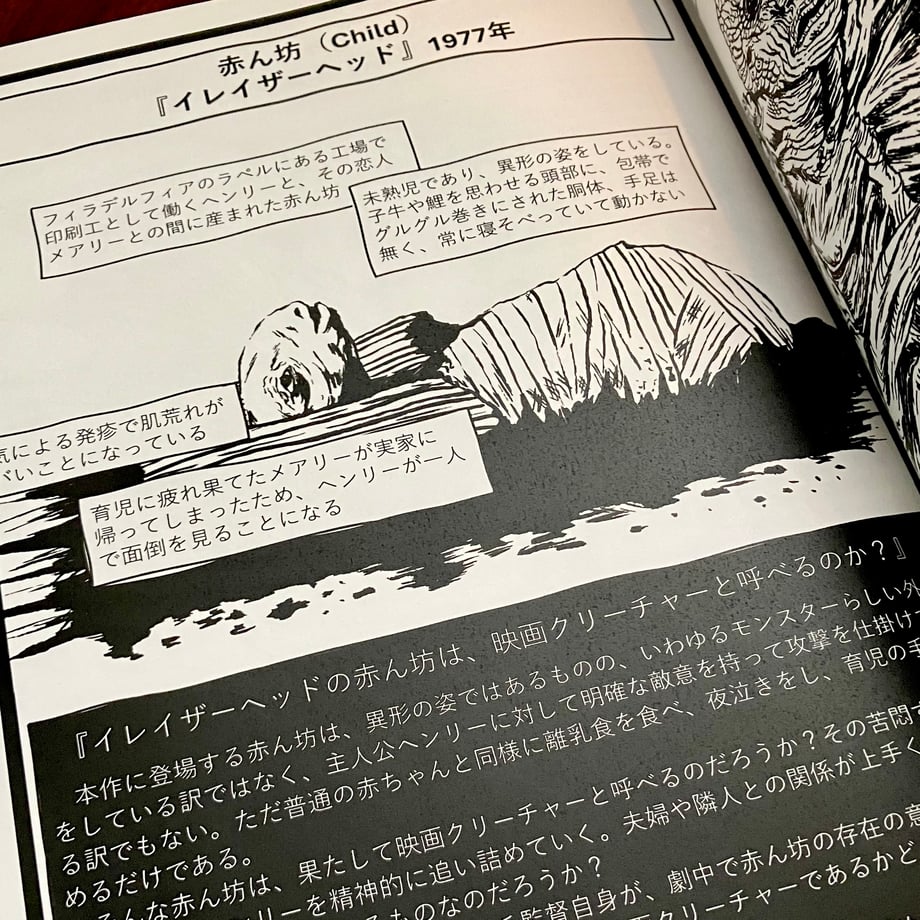 赤ん坊(Child)
『イレイザーヘッド』1977年
フィラデルフィアのラベルにある工場で
印刷工として働くヘンリーと、その恋人
メアリーとの間に産まれた赤ん坊
未熟児であり、異形の姿をしている。
子牛や鯉を思わせる頭部に、包帯で
グルグル巻きにされた胴体、手足は
無く、常に寝そべっていて動かない
気による発疹で肌荒れが
バいことになっている
育児に疲れ果てたメアリーが実家に
帰ってしまったため、ヘンリーが一人
で面倒を見ることになる
『イレイザーヘッドの赤ん坊は、映画クリーチャーと呼べるのか?』
本作に登場する赤ん坊は、異形の姿ではあるものの、いわゆるモンスターらしい外
をしている訳ではなく、主人公ヘンリーに対して明確な敵意を持って攻撃を仕掛け
る訳でもない。ただ普通の赤ちゃんと同様に離乳食を食べ、夜泣きをし、育児の手
めるだけである。
そんな赤ん坊は、果たして映画クリーチャーと呼べるのだろうか?その苦悶
ンリーを精神的に追い詰めていく。夫婦や隣人との関係が上手く
るものなのだろうか?
監督自身が、劇中で赤ん坊の存在の意
クリーチャーであるかど